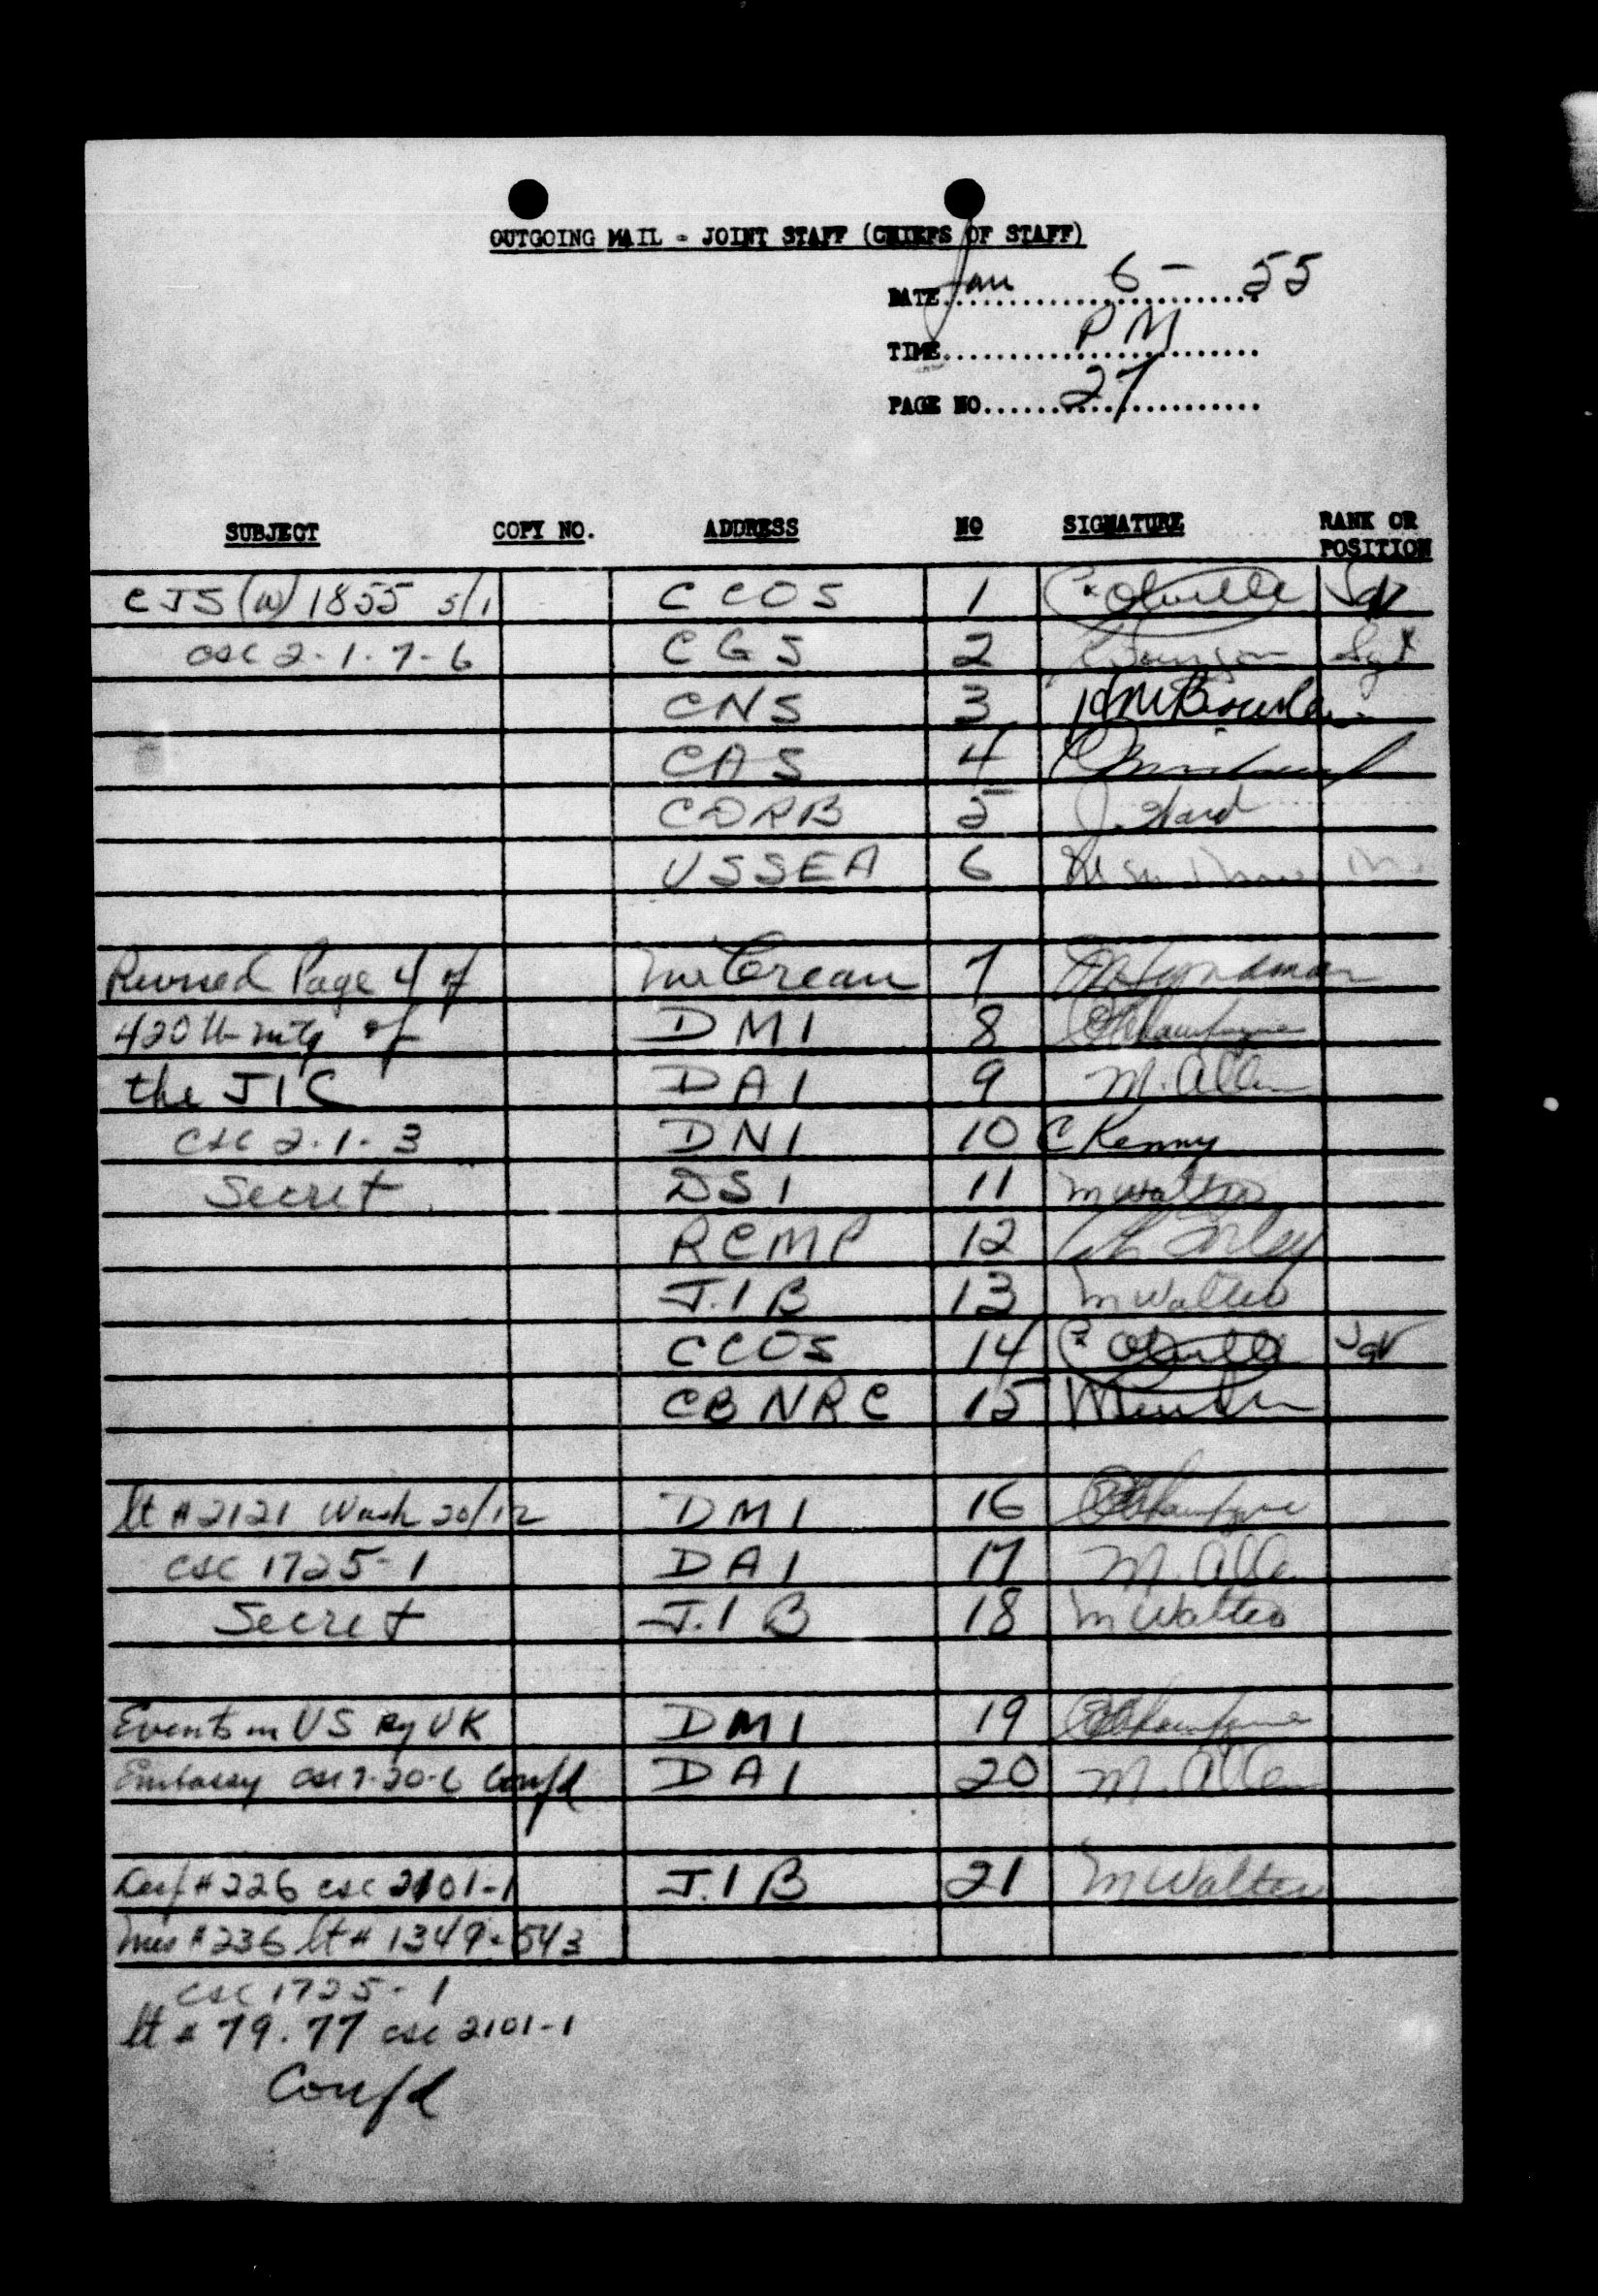 OUTGOING MAIL - JOINT STAFF (CHIEFS OF STAFF)
DATE Jan 6 - 55
TIME PM
PAGE NO 27
SUBJECT COPY NO. ADDRESS NO SIGNATURE RANK OR POSITION
CJS (W) 1855 5/1 CCOS 1
csc 2-1-7-6 CGS 2 Sgt
CNS 3
CAS 4
CDRB 5 J. Ward
USSEA 6
Revised Page 4 of Mr Crean 7 Hyndman
420th mtg of DMI 8
the JIC DAI 9 M. Allen
csc 2-1-3 DNI 10 C Kenny
Secret DSI 11 M Walters
RCMP 12
J.I B 13 M Walters
CCOS 14
CB NRC 15
lt # 2121 Wash 20/12 DMI 16
csc 1725-1 DAI 17 M. Allen
Secret J.I B 18 M Walters
Events in US by UK DMI 19
Embassy csc 7-20-6 Confd DAI 20 M. Allen
# 226 csc 2101-1 J.I B 21 M Walters
# 236 lt # 1349 - 543
csc 1725-1
lt # 79. 77 csc 2101-1
Confd